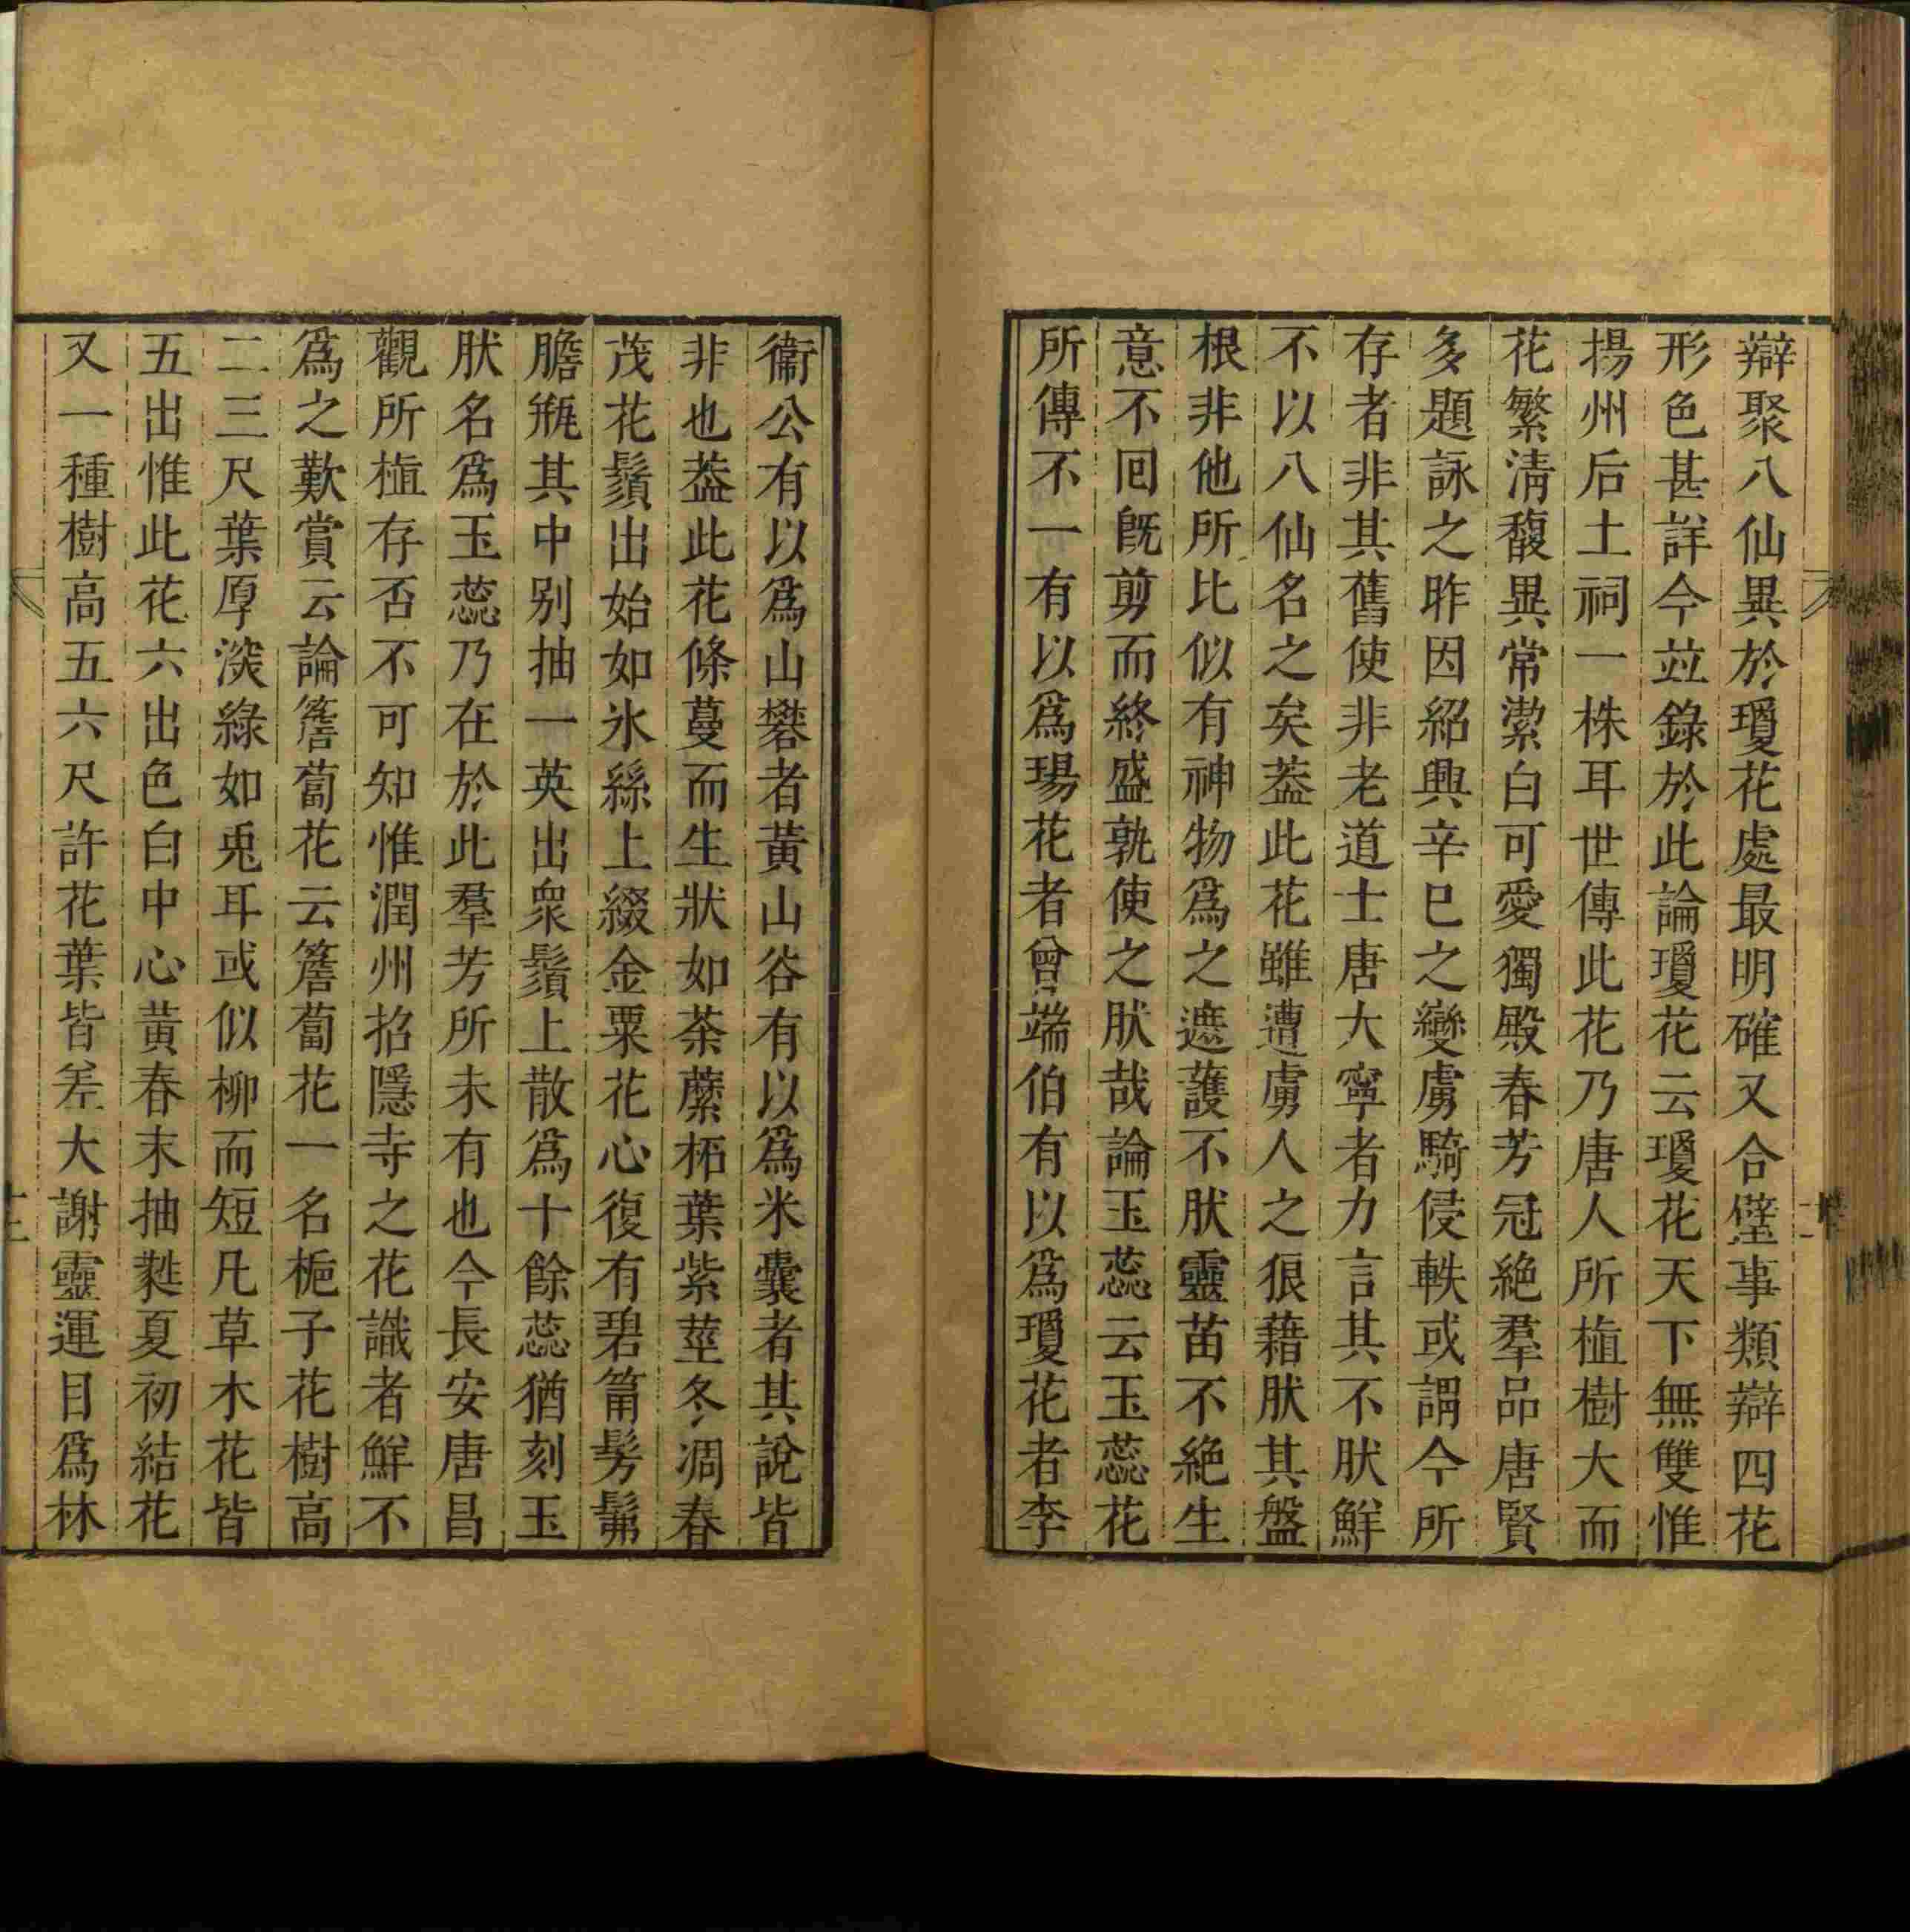 辯聚八仙異於瓊花處最明確又合璧事類辯四花
形色甚詳今竝錄於此論瓊花云瓊花天下無雙惟
揚州后土祠一株耳世傳此花乃唐人所植樹大而
花繁淸馥異常潔白可愛獨殿春芳冠絶羣品唐賢
多題詠之昨因紹興辛巳之變虜騎侵軼或謂今所
存者非其舊使非老道士唐大寧者力言其不肰鮮
不以八仙名之矣葢此花雖遭虜人之狠藉肰其盤
根非他所比似有神物爲之遮護不肰靈苗不絶生
意不回旣剪而終盛孰使之肰哉論玉蕊云玉蕊花
所傳不一有以爲瑒花者曾端伯有以爲瓊花者李
衞公有以爲山礬者黃山谷有以爲米囊者其說皆
非也葢此花條蔓而生狀如茶䕷柘葉紫莖冬凋春
茂花鬚出始如氷絲上綴金粟花心復有碧筩髣髴
膽瓶其中别抽一英出衆鬚上散爲十餘蕊猶刻玉
肰名爲玉蕊乃在於此羣芳所未有也今長安唐昌
觀所植存否不可知惟潤州招隱寺之花識者鮮不
爲之歎賞云論簷蔔花云簷蔔花一名梔子花樹高
二三尺葉厚淡綠如兎耳或似柳而短凡草木花皆
五出惟此花六出色白中心黃春末抽蕤夏初結花
又一種樹高五六尺許花葉皆差大謝靈運目爲林